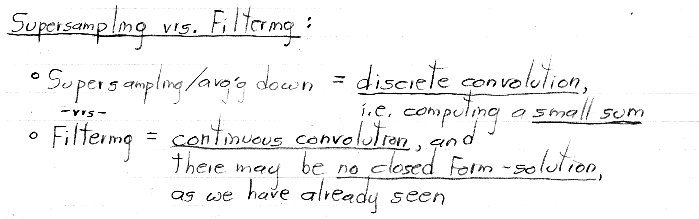 Supersampling vrs. Filtering:
• Supersampling/avg'g down = discrete convolution,
i.e. computing a small sum
-vrs-
• Filtering = continuous convolution, and
there may be no closed form-solution,
as we have already seen